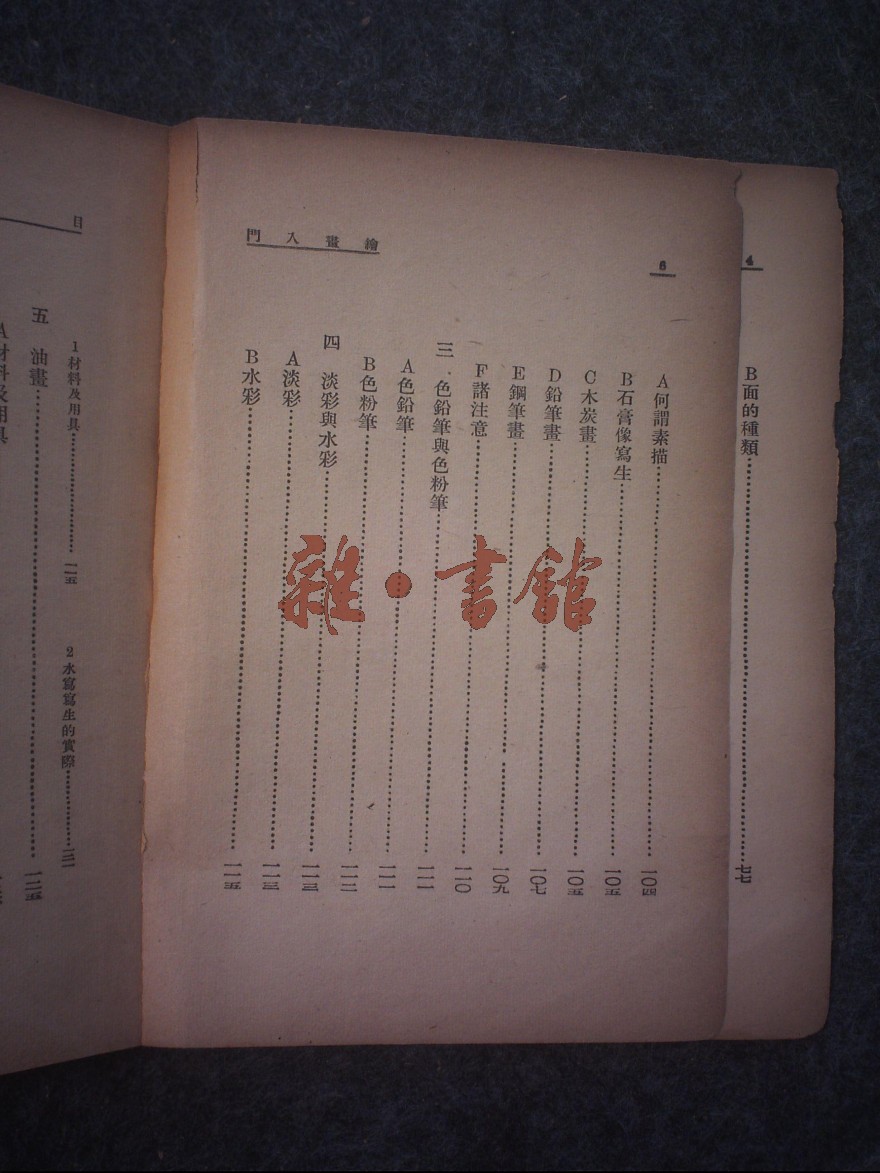 4
B面的種類……七七
繪畫入門
6
A何謂素描……一〇四
B石膏像寫生……一〇五
C木炭畫……一〇五
D鉛筆畫……一〇七
E鋼筆畫……一〇九
F諸注意……一一〇
三．色鉛筆與色粉筆……一一一
A色鉛筆……一一一
B色粉筆……一一二
四 淡彩與水彩……一一三
A淡彩……一一三
B水彩……一一五
雜·書館
目
1材料及用具……一一五 2水寫寫生的實際……一二一
五 油畫……一二五
A材料及用具